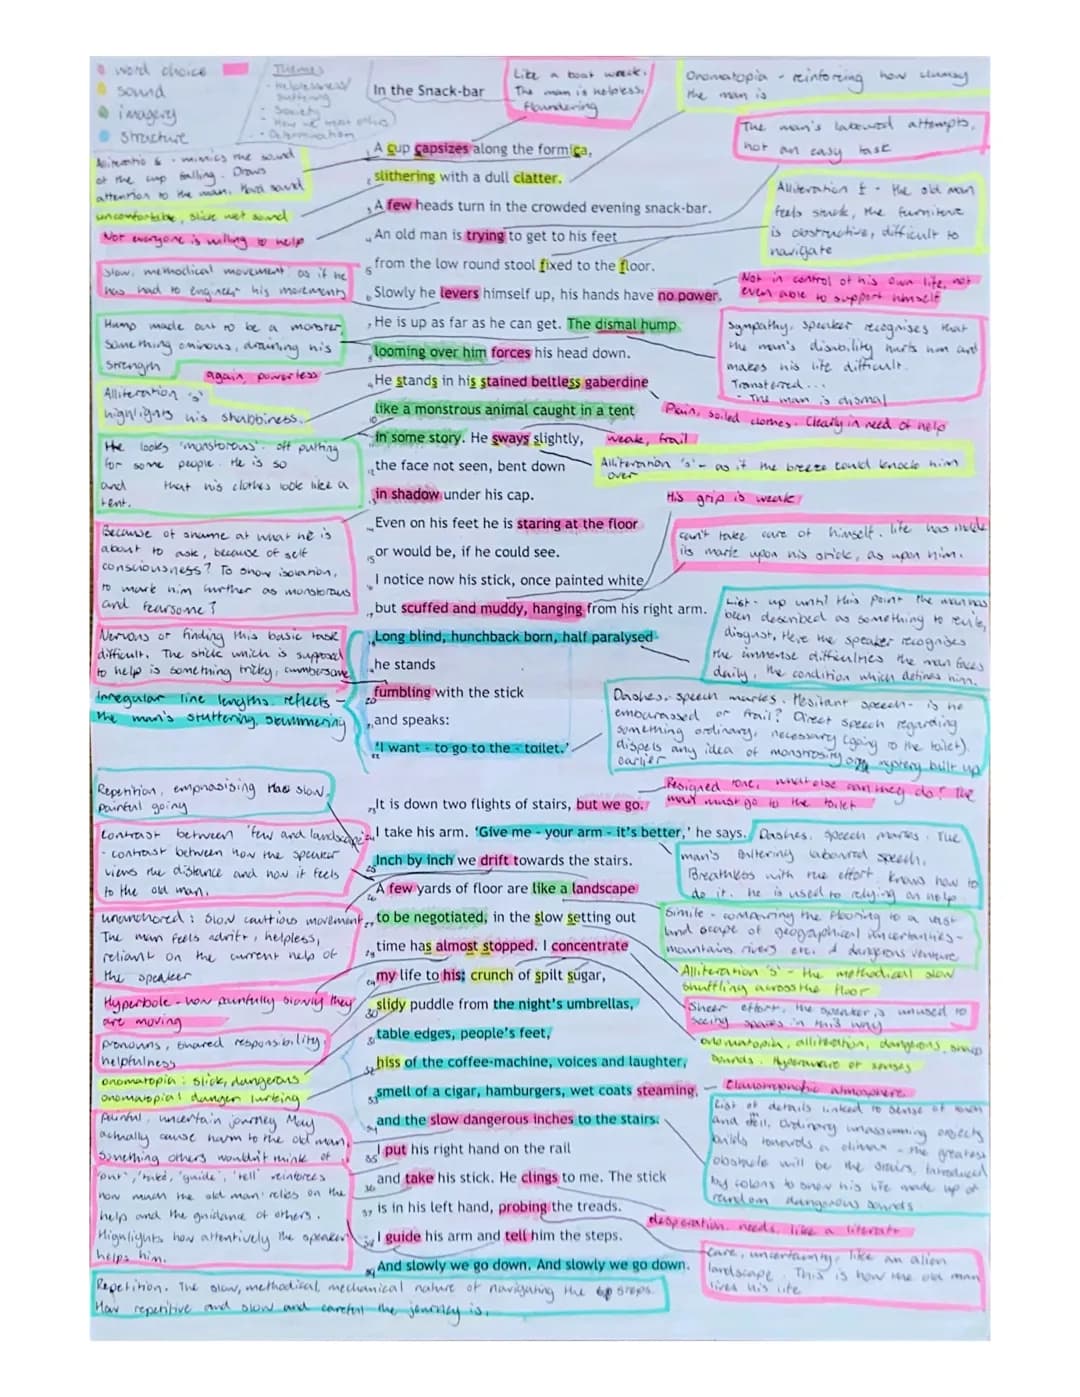 word choice
sound
imagery
structure
Themes
- Helplessness/
suffering
- Society
- How we treat others
- Determination
In the Snack-bar
Like a boat wreck.
The man is helpless,
floundering
Onomatopia - reinforcing how clumsy
the man is
The man's laboured attempts,
not an easy task
Alliteration - mimics the sound
of the cup falling. Draws
attention to the man. Hard sound
uncomfortable, slick wet sound
Not everyone is willing to help
Slow, methodical movement as if he
has had to engineer his movements
Hump made out to be a monster,
something ominous, draining his
strength
again, powerless
Alliteration 's'
highlights his shabbiness.
He looks 'monstorous'. off putting
for some people. He is so
and that his clothes look like a
tent.
Because of shame at what he is
about to ask, because of self
consciousness? To show isolation,
to mark him further as monstorous
and fearsome?
Nervous or finding this basic task
difficult. The stick which is supposed
to help is something tricky, cumbersome
Irregular line lengths reflects
the man's stuttering, stammering
A cup capsizes along the formica,
slithering with a dull clatter.
A few heads turn in the crowded evening snack-bar.
An old man is trying to get to his feet
from the low round stool fixed to the floor.
Slowly he levers himself up, his hands have no power.
He is up as far as he can get. The dismal hump
looming over him forces his head down.
He stands in his stained beltless gaberdine
like a monstrous animal caught in a tent
in some story. He sways slightly,
the face not seen, bent down
in shadow under his cap.
Even on his feet he is staring at the floor
or would be, if he could see.
I notice now his stick, once painted white
but scuffed and muddy, hanging from his right arm.
Long blind, hunchback born, half paralysed
he stands
fumbling with the stick
and speaks:
'I want - to go to the - toilet.'
Alliteration f - the old man
feels stuck, the furniture
is obstructive, difficult to
navigate
Not in control of his own life, not
even able to support himself
Sympathy, speaker recognises that
the man's disability hurts him and
makes his life difficult.
Transferred...
- The man is dismal
Plain, soiled clothes. Clearly in need of help
weak, frail
Alliteration 's' - as if the breeze could knock him
over
His grip is weak
can't take care of himself. life has made
its mark upon his stick, as upon him.
List - up until this point the man has
been described as something to revile,
disgust. Here the speaker recognises
the immense difficulties the man faces
daily, the condition which defines him.
Dashes, speech marks. Hesitant speech - is he
embarassed or frail? Direct speech regarding
something ordinary, necessary (going to the toilet).
dispels any idea of monstrosity or mystery built up
earlier
Repetition, emphasising the slow,
painful going
Contrast between 'few and landscape'
- contrast between how the speaker
views the distance and how it feels
to the old man.
unanchored: slow cautious movement,
The man feels adrift, helpless,
reliant on the current help of
the speaker
Hyperbole - how painfully slowly they
are moving
pronouns, shared responsibility,
helpfulness
onomatopia: slick, dangerous
onomatopia: danger lurking
Painful, uncertain journey. May
actually cause harm to the old man,
something others wouldn't think of
'put', 'take', 'guide', 'tell' reinforces
how much the old man relies on the
help and the guidance of others.
Highlights how attentively the speaker
helps him.
It is down two flights of stairs, but we go.
I take his arm. 'Give me - your arm - it's better,' he says.
Inch by inch we drift towards the stairs.
A few yards of floor are like a landscape
to be negotiated, in the slow setting out
time has almost stopped. I concentrate
my life to his: crunch of spilt sugar,
slidy puddle from the night's umbrellas,
table edges, people's feet,
hiss of the coffee-machine, voices and laughter,
smell of a cigar, hamburgers, wet coats steaming,
and the slow dangerous inches to the stairs.
I put his right hand on the rail
and take his stick. He clings to me. The stick
is in his left hand, probing the treads.
I guide his arm and tell him the steps.
And slowly we go down. And slowly we go down.
Resigned tone, what else can they do? The
man must go to the toilet
Dashes, speech marks. The
man's faltering laboured speech.
Breathless with the effort, knows how to
do it. he is used to relying on help
Simile - comparing the flooring to a vast
landscape of geographical uncertainties -
mountains, rivers etc. A dangerous venture
Alliteration 's' - the methodical slow
shuffling across the floor
Sheer effort, the speaker is unused to
seeing spaces in this way
onomatopia, alliteration, dangerous, sharp
sounds. Hyperaware of senses
Claustrophobic atmosphere
List of details linked to sense of touch
and smell. Ordinary unassuming objects
builds towards a climax - the greatest
obstacle will be the stairs. Introduced
by colons to show his life made up of
random dangerous sounds
desperation, needs, like a literal
Care, uncertainty, like an alien
landscape. This is how the old man
lives his life
Repetition. The slow, methodical, mechanical nature of navigating the steps.
How repetitive and slow and careful the journey is.